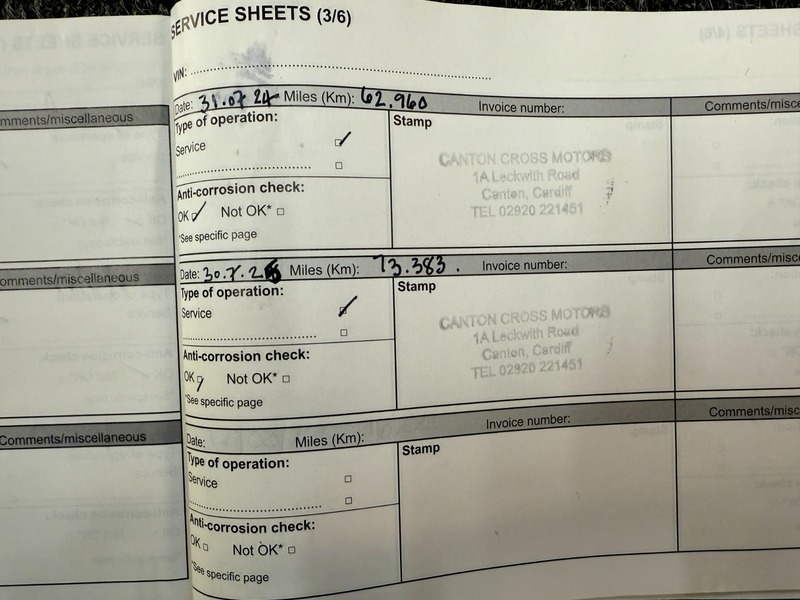 SERVICE SHEETS (3/6)
VIN:
Date: 31.07.24 Miles (Km): 62.960 Invoice number: Comments/misce
Type of operation:
Stamp
Service
CANTON CROSS MOTORS
1A Leckwith Road
Canton, Cardiff
TEL 02920 221451
Anti-corrosion check:
OK Not OK*
*See specific page
Date: 30.7.25 Miles (Km): 73.383. Invoice number: Comments/misce
Type of operation:
Stamp
Service
CANTON CROSS MOTORS
1A Leckwith Road
Canton, Cardiff
TEL 02920 221451
Anti-corrosion check:
OK Not OK*
*See specific page
Date: Miles (Km): Invoice number: Comments/misce
Type of operation:
Stamp
Service
Anti-corrosion check:
OK Not OK*
*See specific page
mments/miscellaneous
omments/miscellaneous
Comments/miscellaneous